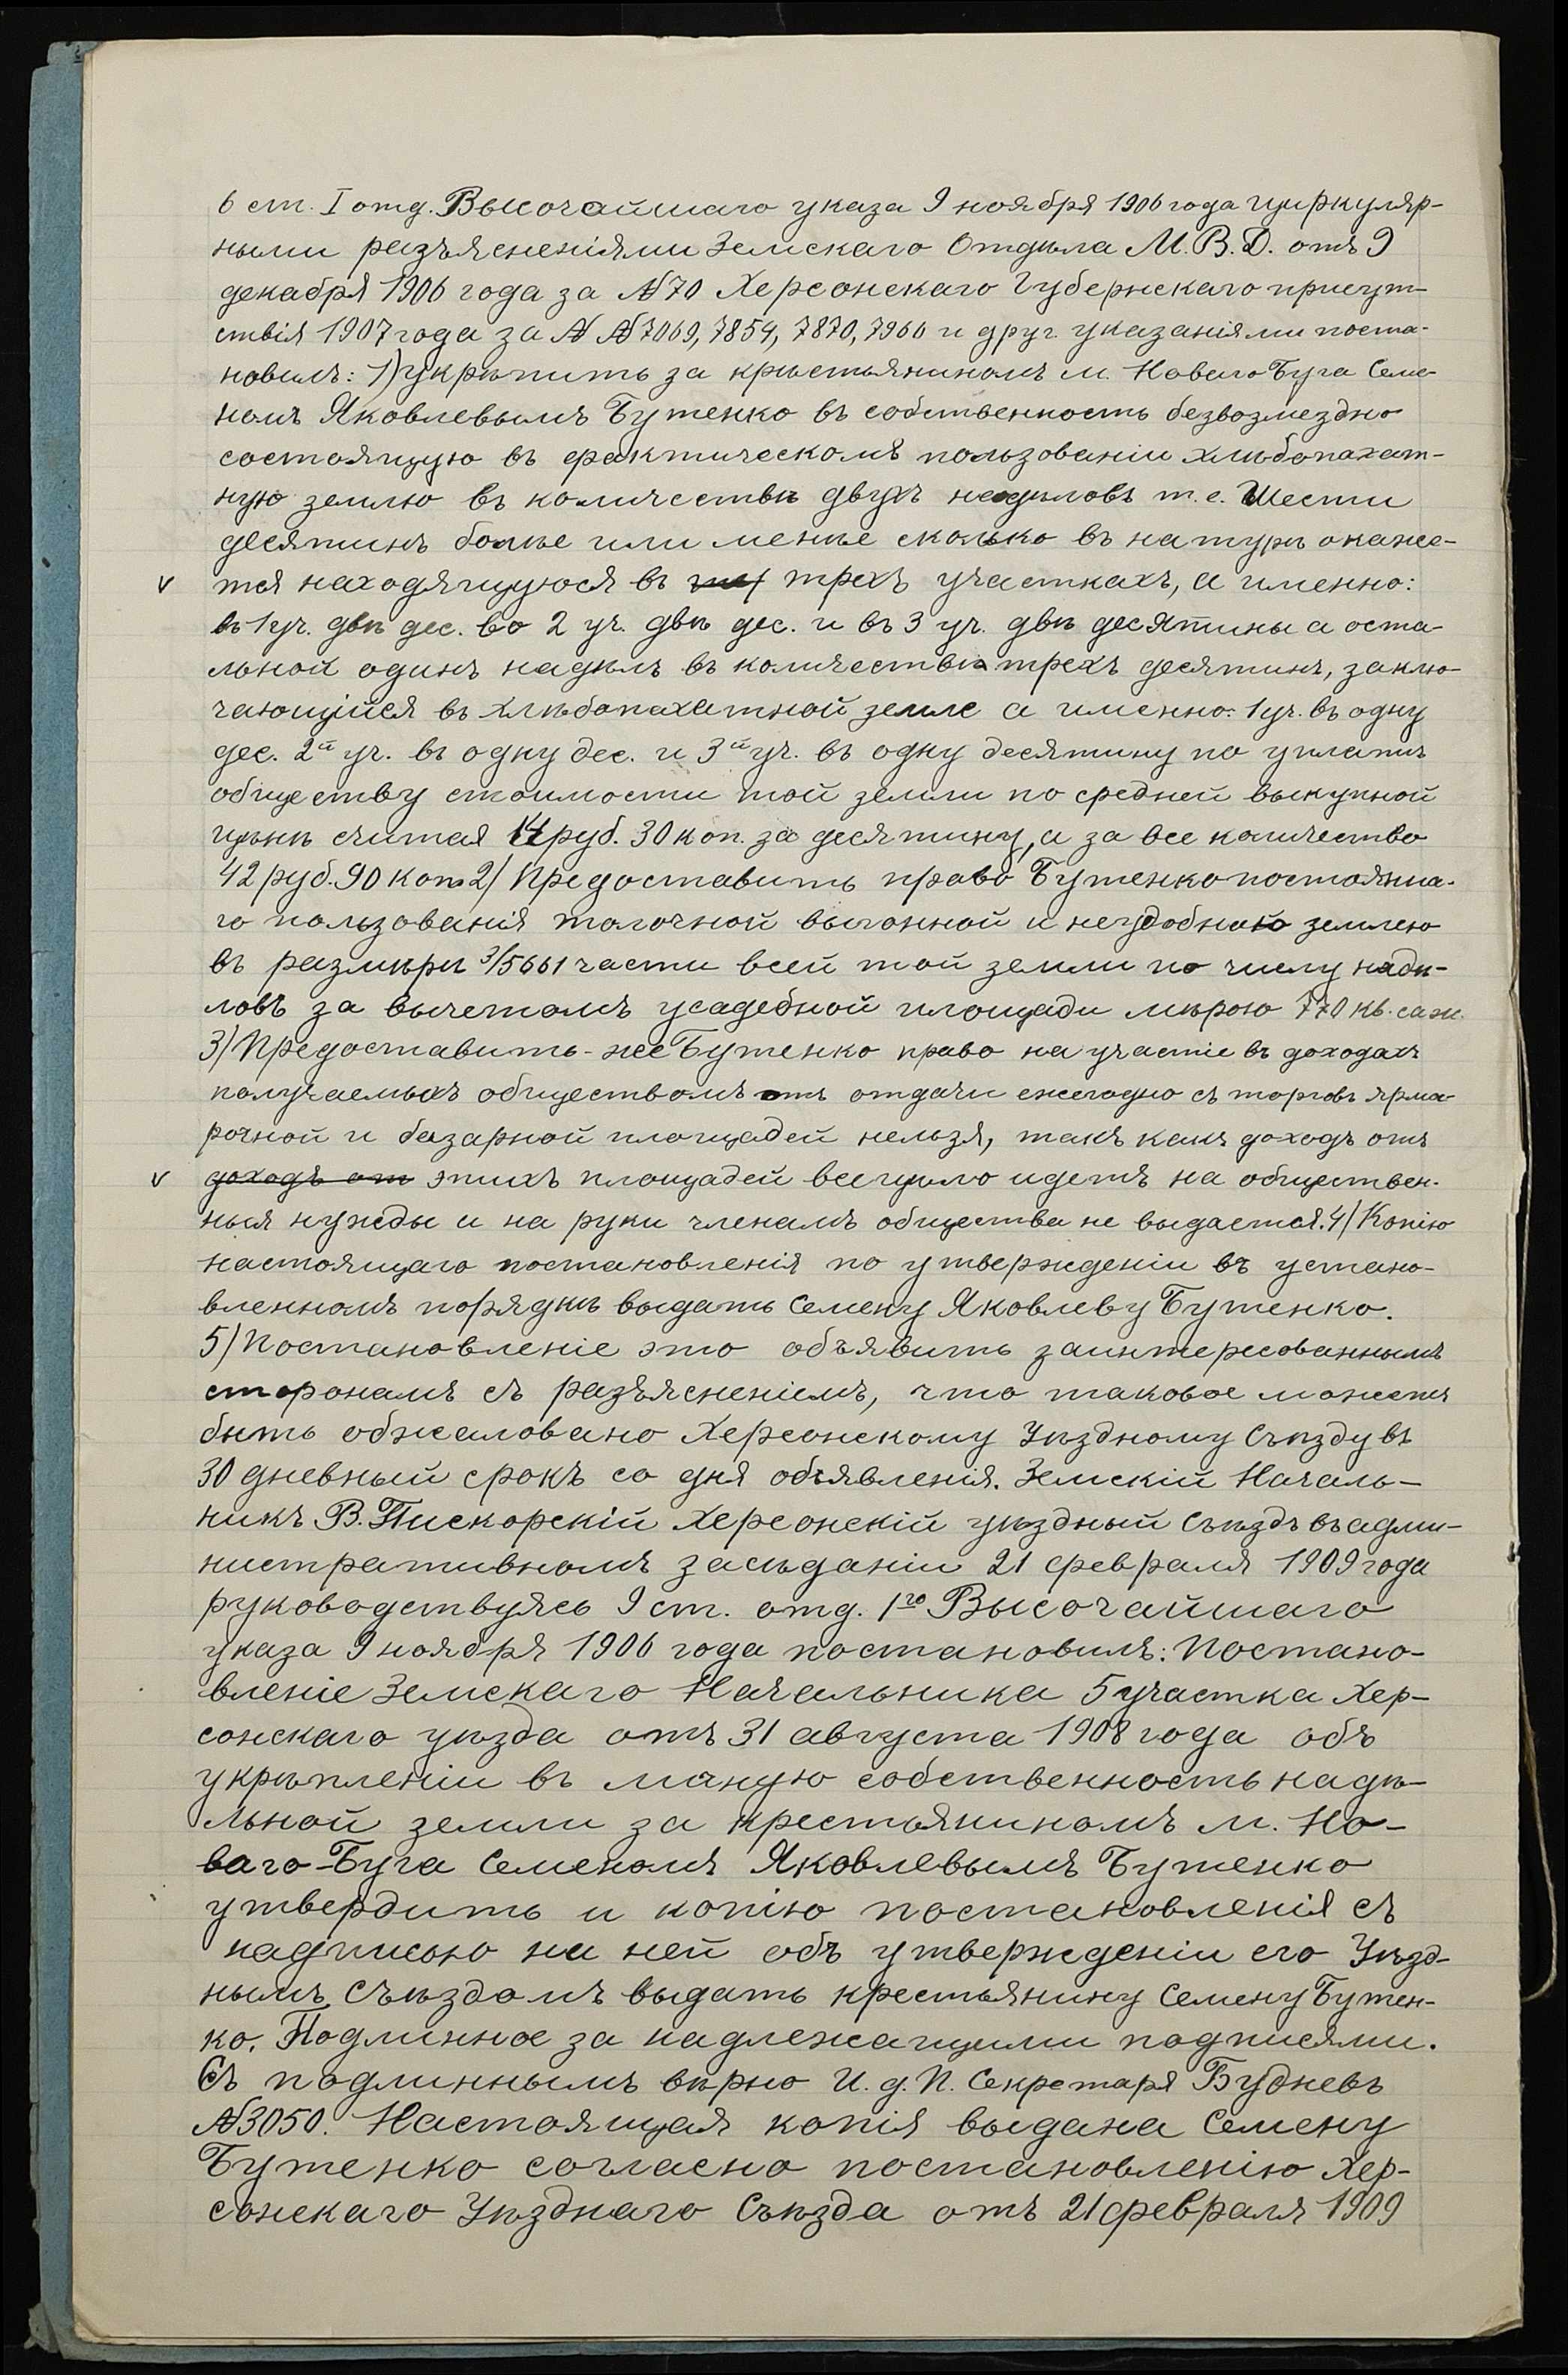 6 ст. I отд. Высочайшаго указа 9 ноября 1906 года циркуляр-
ными разъясненіями Земскаго Отдѣла М.В.Д. отъ 9
декабря 1906 года за №70 Херсонскаго Губернскаго присут-
ствія 1907 года за №№7069, 7854, 7870, 7966 и друг. указаніями поста-
новилъ: 1) укрѣпить за крестьяниномъ м. Новаго Буга Семе-
номъ Яковлевымъ Бутенко въ собственность безвозмездно
состоящую въ фактическомъ пользованіи хлѣбопахат-
ную землю въ количествѣ двухъ надѣловъ т.е. Шести
десятинъ болѣе или менѣе сколько въ натурѣ окаже-
v тся находящуюся въ трехъ участкахъ, а именно:
въ 1 уч. двѣ дес. во 2 уч. двѣ дес. и въ 3 уч. двѣ десятины а оста-
льной одинъ надѣлъ въ количествѣ трехъ десятинъ, заклю-
чающійся въ хлѣбопахатной земле а именно: 1 уч. въ одну
дес. 2й уч. въ одну дес. и 3й уч. въ одну десятину по уплатѣ
обществу стоимости той земли по средней выкупной
цѣнѣ считая 14 руб. 30 коп. за десятину, а за все количество
42 руб. 90 коп. 2) Предоставить право Бутенко постоянна-
го пользованія толочной выгонной и неудобною землею
въ размѣрѣ 3/5661 части всей той земли по числу надѣ-
ловъ за вычетомъ усадебной площади мѣрою 770 кв. саж.
3) Предоставить-же Бутенко право на участіе въ доходахъ
получаемыхъ обществомъ отъ отдачи ежегодно съ торговъ ярма-
рочной и базарной площадей нельзя, такъ какъ доходъ отъ
v доходъ от этихъ площадей всецѣло идетъ на обществен-
ныя нужды и на руки членамъ общества не выдается. 4) Копію
настоящаго постановленія по утвержденіи въ устано-
вленномъ порядкѣ выдать Семену Яковлеву Бутенко.
5) Постановленіе это объявить заинтересованнымъ
сторонамъ съ разъясненіемъ, что таковое можетъ
быть обжаловано Херсонскому Уѣздному Съѣзду въ
30 дневный срокъ со дня объявленія. Земскій Началь-
никъ В. Пискорскій Херсонскій уѣздный Съѣздъ въ адми-
нистративномъ засѣданіи 21 февраля 1909 года
руководствуясь 9 ст. отд. 1го Высочайшаго
указа 9 ноября 1906 года постановилъ: Постано-
вленіе Земскаго Начальника 5 участка Хер-
сонскаго уѣзда отъ 31 августа 1908 года объ
укрѣпленіи въ личную собственность надѣ-
льной земли за крестьяниномъ м. Но-
ваго-Буга Семеномъ Яковлевымъ Бутенко
утвердить и копію постановленія съ
надписью на ней объ утвержденіи его Уѣзд-
нымъ Съѣздомъ выдать крестьянину Семену Бутен-
ко. Подлинное за надлежащими подписями.
Съ подлиннымъ вѣрно И.д.П. Секретаря Будневъ
№3050. Настоящая копія выдана Семену
Бутенко согласно постановленію Хер-
сонскаго Уѣзднаго Съѣзда отъ 21 февраля 1909